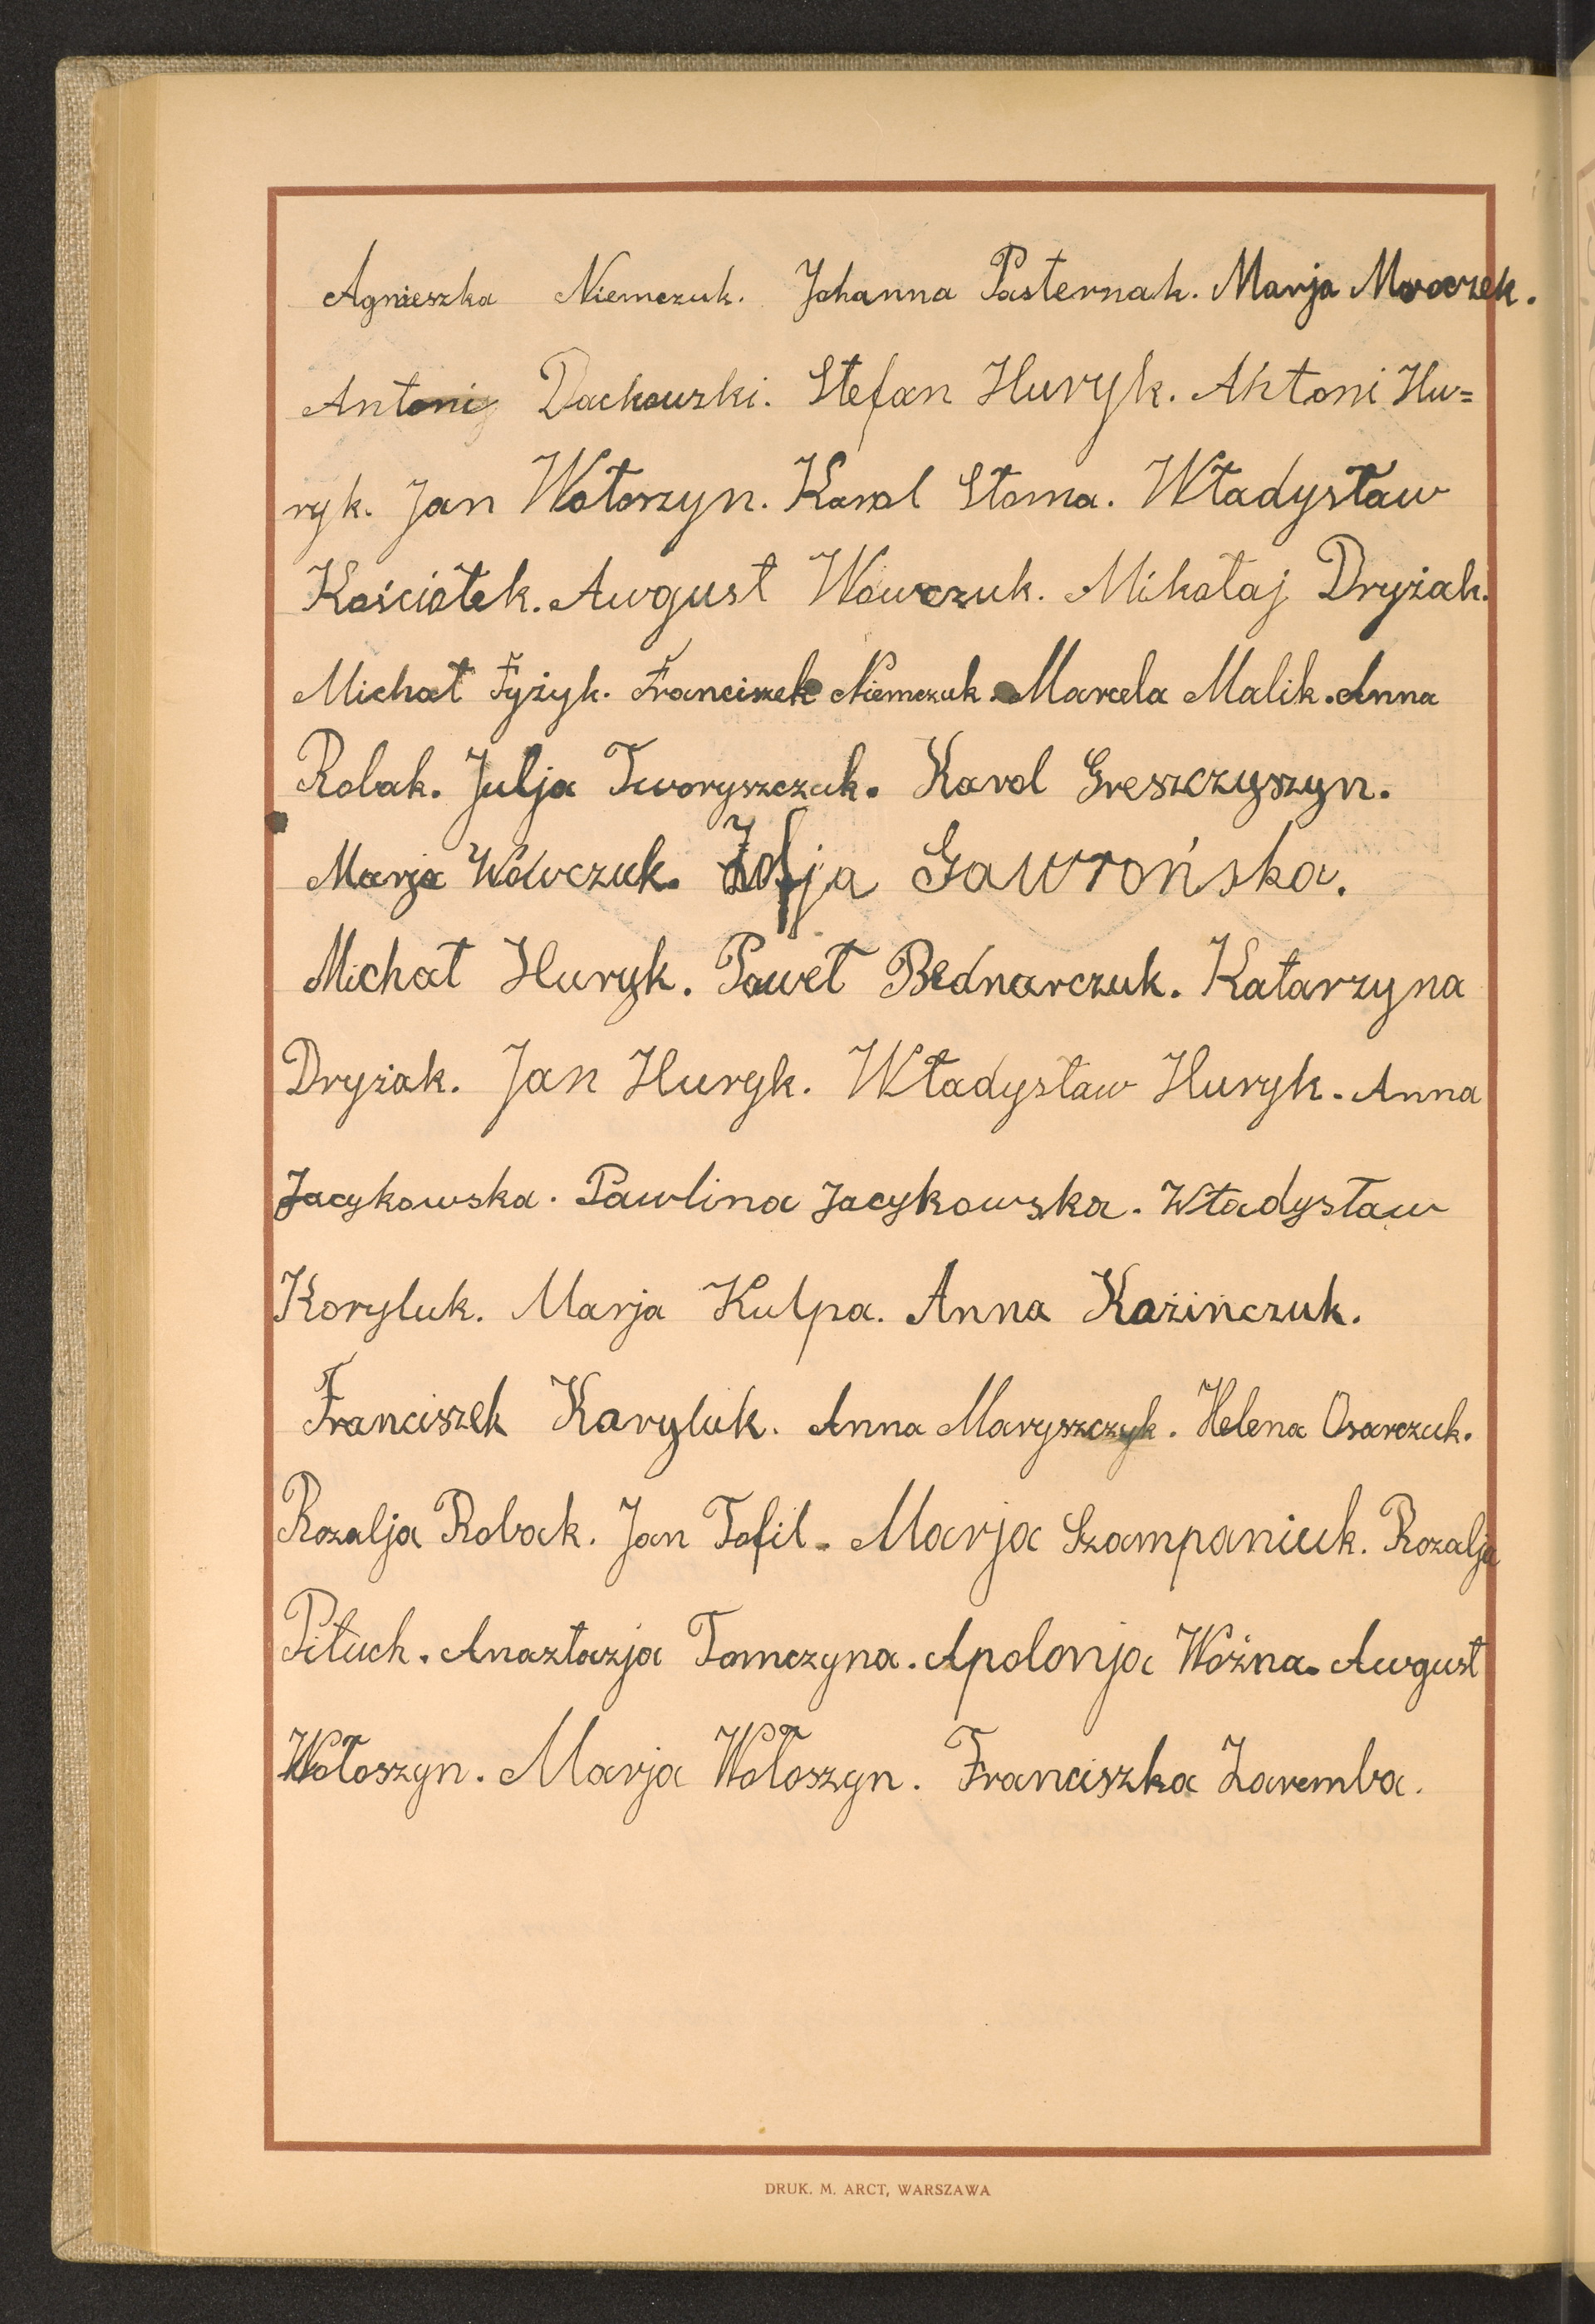 Agnieszka Niemczuk. Johanna Pasternak. Marja Mroczek.
Antoni Dackowski. Stefan Huryk. Antoni Hu=
ryk. Jan Wołoszyn. Karol Słoma. Władysław
Kościołek. August Wowczuk. Mikołaj Dryżak.
Michał Fyżyk. Franciszek Niemczuk. Marcela Malik. Anna
Robak. Julja Tworyszczuk. Karol Greszczyszyn.
Marja Wówczuk. Zofja Gawrońska.
Michał Huryk. Paweł Bednarczuk. Katarzyna
Dryżak. Jan Huryk. Władysław Huryk. Anna
Jacykowska. Pawlina Jacykowska. Władysław
Koryluk. Marja Kulpa. Anna Kazińczuk.
Franciszek Karyluk. Anna Maryszczyk. Helena Osarczuk.
Rozalja Robak. Jan Tofil. Marja Szampaniuk. Rozalja
Pituch. Anaztazja Tomczyna. Apolonja Woźna. August
Wołoszyn. Marja Wołoszyn. Franciszka Zaremba.
DRUK. M. ARCT, WARSZAWA